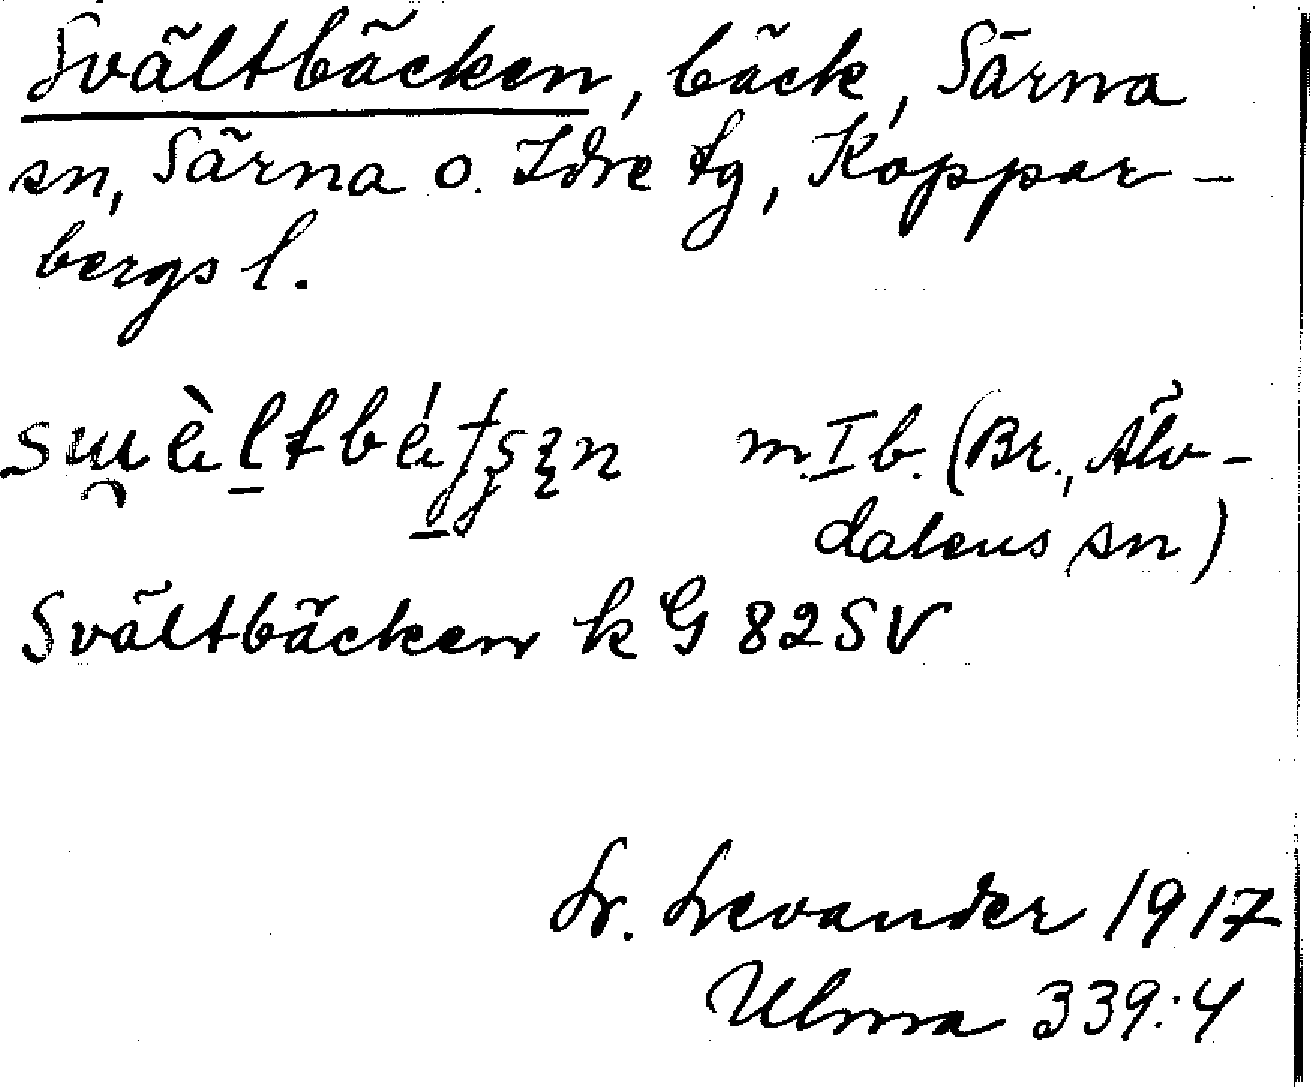 Svältbäcken, bäck, Särna
sn, Särna o. Idre tg, Koppar-
bergs l.
m. I b. (Br., Älv-
dalens sn)
Svältbäcken k G 82 SV
L. Levander 1917
Ulma 339:4